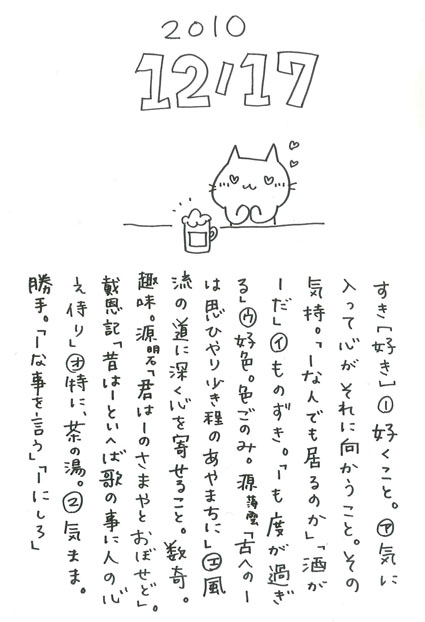 2010
12/17
すき［好き］①好くこと。㋐気に
入って心がそれに向かうこと。その
気持。「ーな人でも居るのか」「酒が
ーだ」㋑ものずき。「ーも度が過ぎ
る」㋒好色。色ごのみ。源薄雲「古へのー
は思ひやり少き程のあやまちに」㋓風
流の道に深く心を寄せること。数奇。
趣味。源明石「君はーのさまやとおぼせど」。
戴恩記「昔はーといへば歌の事に人の心
え侍り」㋔特に、茶の湯。②気まま。
勝手。「ーな事を言う」「ーにしろ」